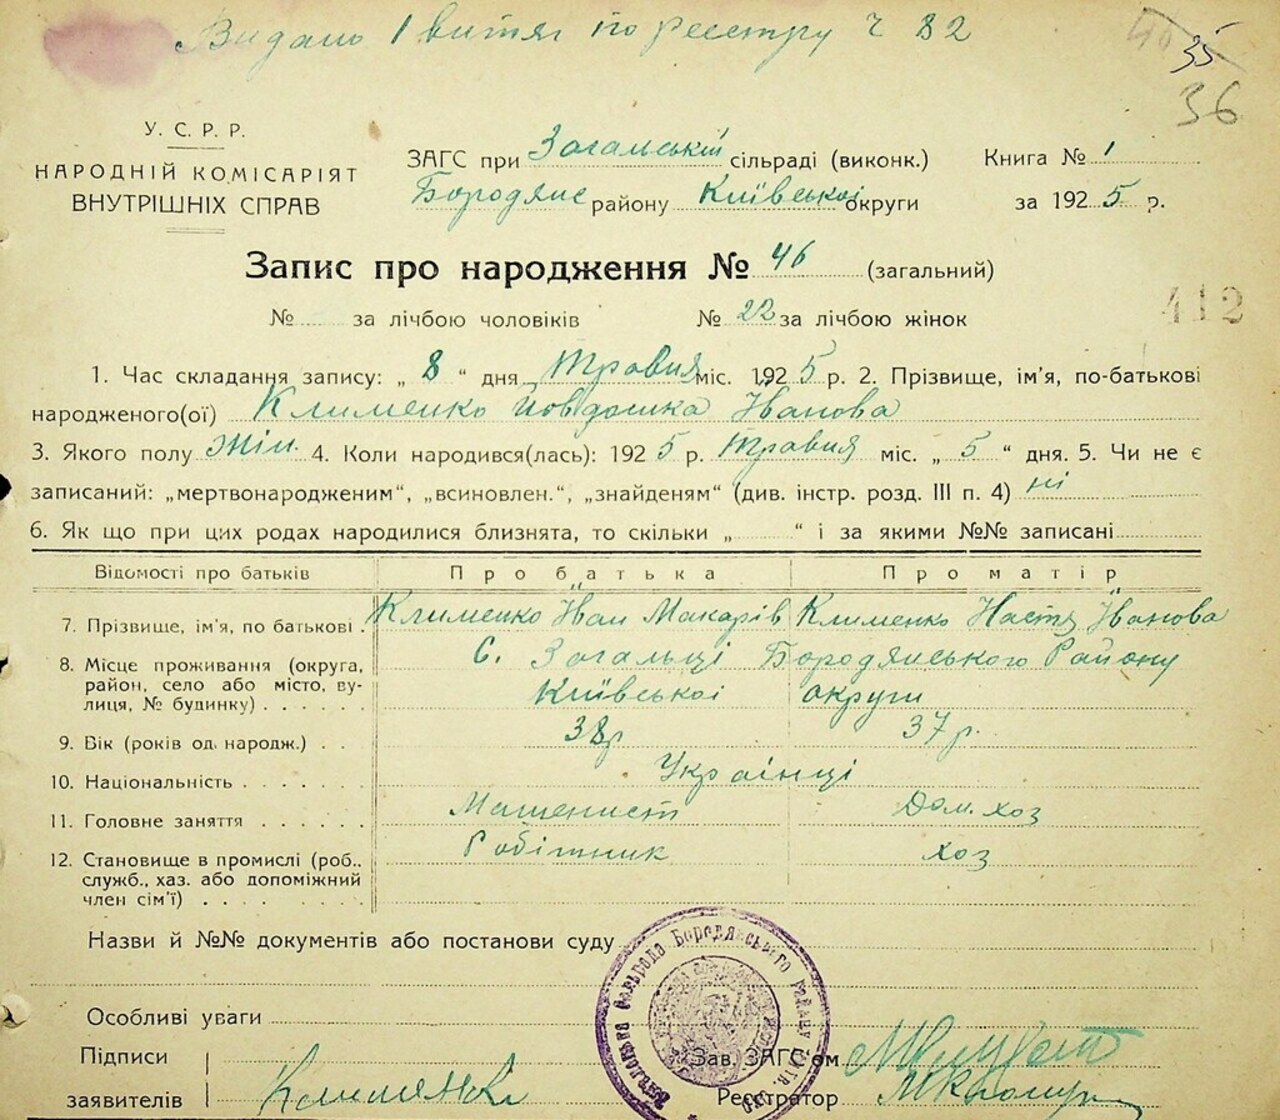 Видано 1 витяг по реєстру ч 82
35
36
У. С. Р. Р.
НАРОДНІЙ КОМІСАРІЯТ
ВНУТРІШНІХ СПРАВ
ЗАГС при Загальській сільраді (виконк.)
Бородянс району Київської округи
Книга № 1
за 1925 р.
Запис про народження № 46 (загальний)
№ за лічбою чоловіків № 22 за лічбою жінок
412
1. Час складання запису: „ 8 “ дня Травня міс. 1925 р. 2. Прізвище, ім'я, по-батькові
народженого(ої) Клименко Йовдошка Іванова
3. Якого полу Жін. 4. Коли народився(лась): 1925 р. Травня міс. „ 5 “ дня. 5. Чи не є
записаний: „мертвонародженим“, „всиновлен.“, „знайденям“ (див. інстр. розд. III п. 4) ні
6. Як що при цих родах народилися близнята, то скільки „ “ і за якими №№ записані
Відомості про батьків Про батька Про матір
7. Прізвище, ім'я, по батькові . Клименко Іван Макарів Клименко Настя Іванова
8. Місце проживання (округа, район, село або місто, ву-
лиця, № будинку) . . . . . .
С. Загальці Бородянського Району
Київської округи
9. Вік (років од народж.) . . 38р 37р.
10. Національність . . . . . . . Українці
11. Головне заняття . . . . . . Машенист Дом. хоз
12. Становище в промислі (роб.,
служб., хаз. або допоміжний
член сім'ї) . . . .
Робітник хоз
Назви й №№ документів або постанови суду
Особливі уваги
Підписи
заявителів
Клименко
Зав. ЗАГС'ом
Реєстратор
сільрада Бородянського району Київ.